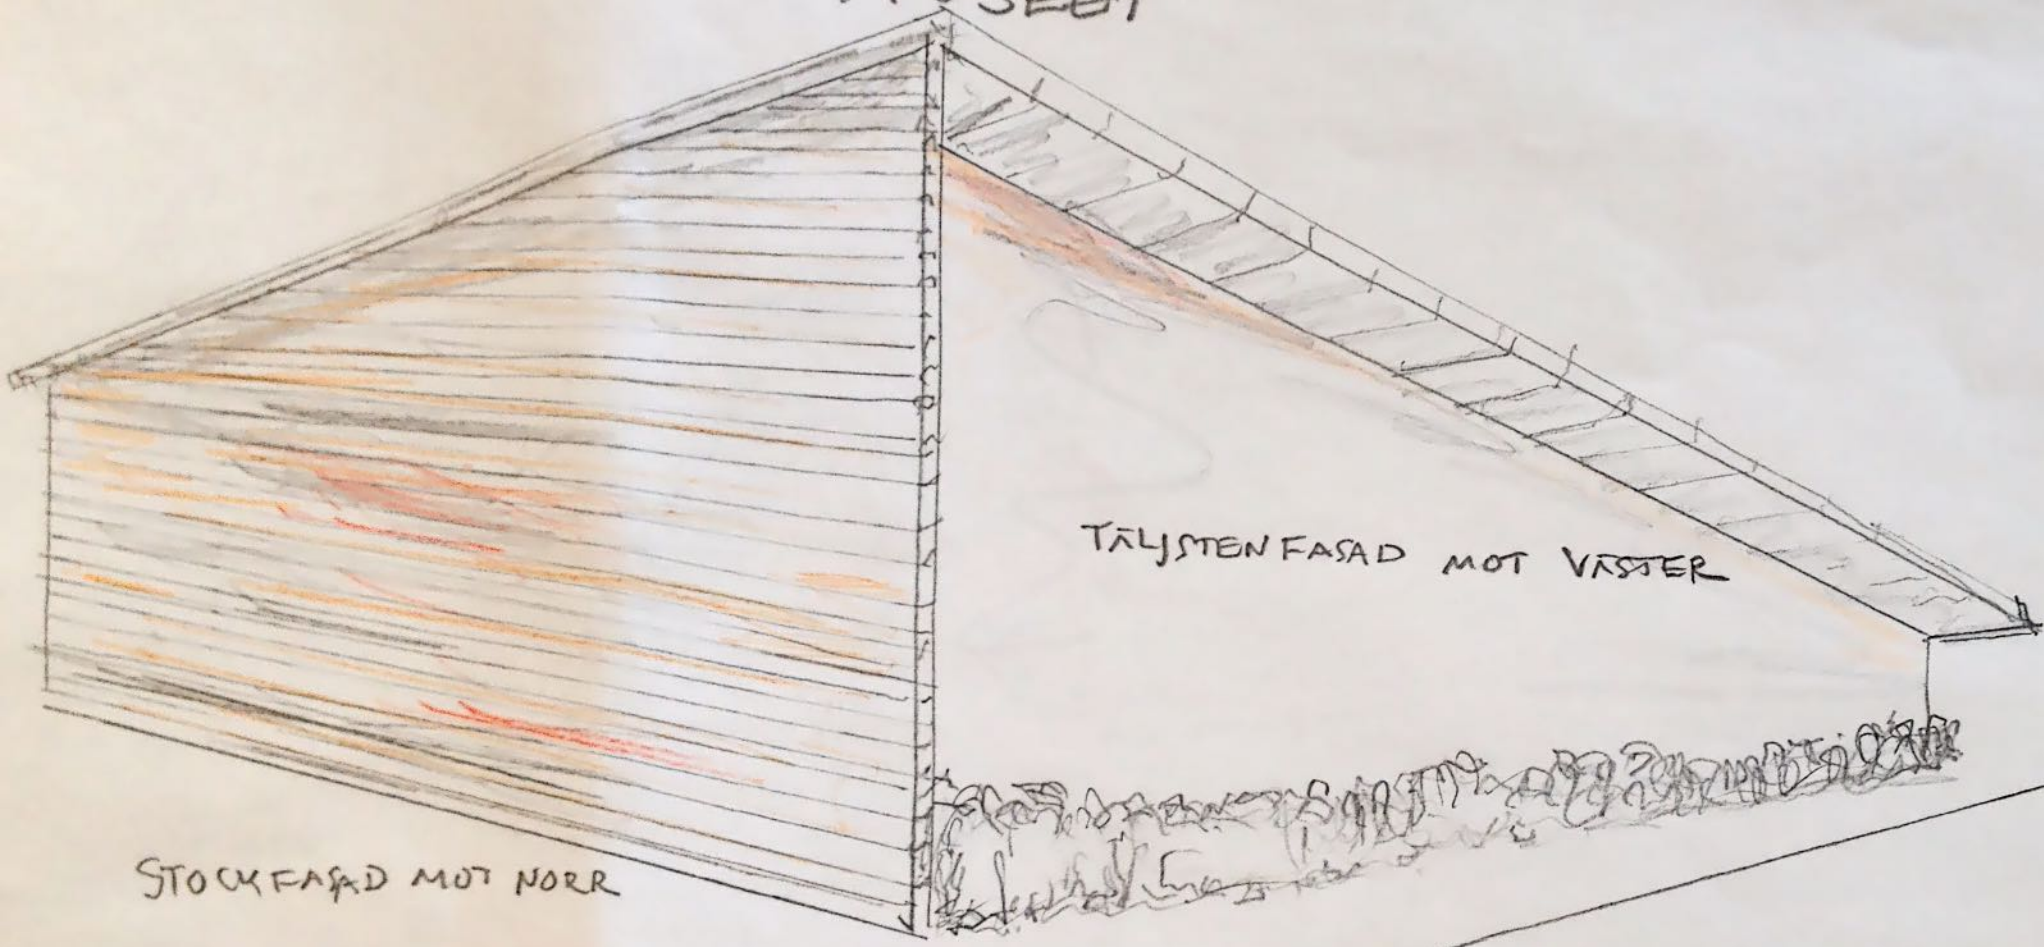 TÄLJSTENFASAD MOT VÄSTER
STOCKFASAD MOT NORR